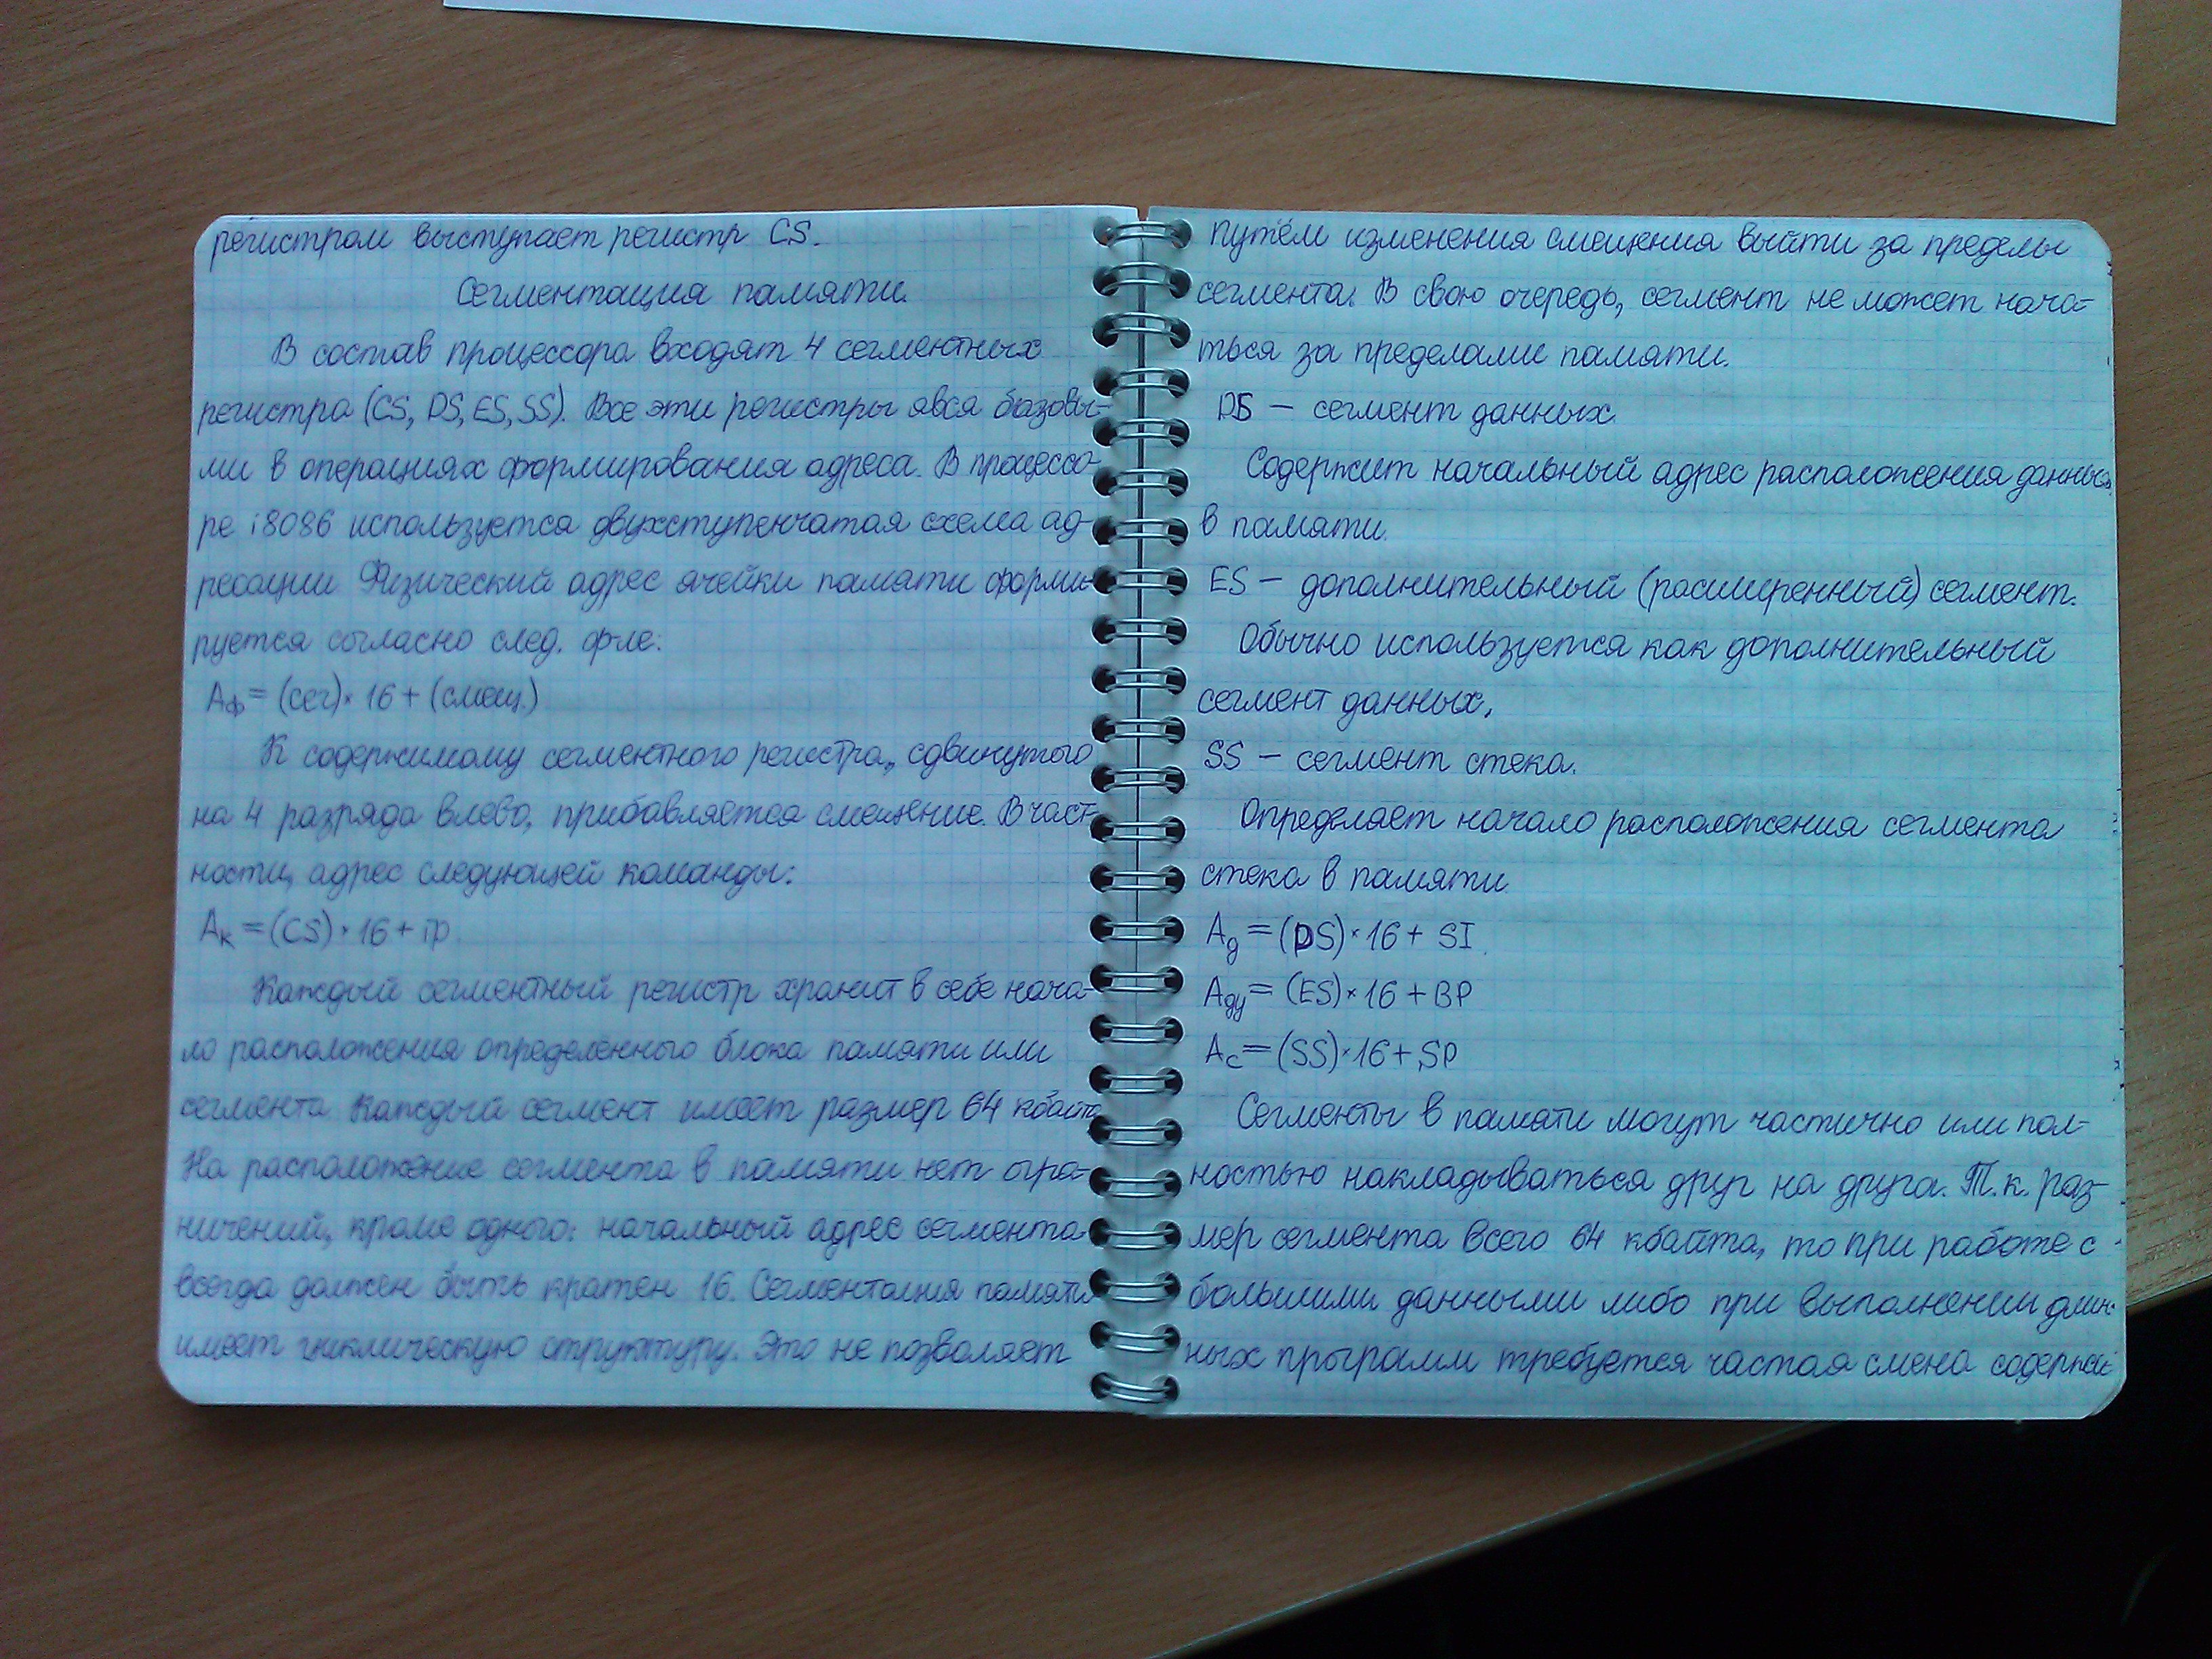 регистром выступает регистр CS.
Сегментация памяти.
В состав процессора входят 4 сегментных
регистра (CS, DS, ES, SS). Все эти регистры явся базовы-
ми в операциях формирования адреса. В процессо-
ре i8086 используется двухступенчатая схема ад-
ресации Физический адрес ячейки памяти форми-
руется согласно след. ф-ле:
Aф = (сег)·16 + (смещ.)
К содержимому сегментного регистра, сдвинутого
на 4 разряда влево, прибавляется смещение. В част-
ности, адрес следующей команды:
Aк = (CS)·16 + ip
Каждый сегментный регистр хранит в себе нача-
ло расположения определенного блока памяти или
сегмента Каждый сегмент имеет размер 64 кбайта
На расположение сегмента в памяти нет огра-
ничений, кроме одного: начальный адрес сегмента
всегда должен быть кратен 16. Сегментация памяти
имеет циклическую структуру. Это не позволяет
путём изменения смещения выйти за пределы
сегмента. В свою очередь, сегмент не может нача-
ться за пределами памяти.
DS – сегмент данных.
Содержит начальный адрес расположения данных
в памяти.
ES – дополнительный (расширенный) сегмент.
Обычно используется как дополнительный
сегмент данных.
SS – сегмент стека.
Определяет начало расположения сегмента
стека в памяти
Aд = (DS)·16 + SI.
Aду = (ES)·16 + BP
Aс = (SS)·16 + SP
Сегменты в памяти могут частично или пол-
ностью накладываться друг на друга. Т.к. раз-
мер сегмента всего 64 кбайта, то при работе с
большими данными либо при выполнении длин-
ных программ требуется частая смена содержи-